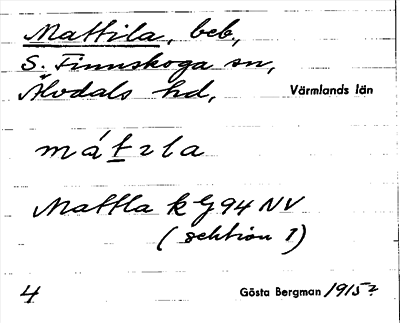 Mattila, beb.,
S. Finnskoga sn,
Älvdals hd, Värmlands län
mátɪla
Mattla k G 94 NV
(sektion 1)
4 Gösta Bergman 1915?